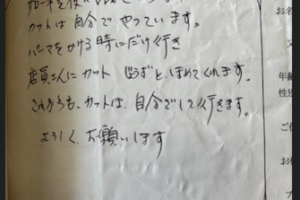 カットは自分でやっています。
パーマをかける時にだけ行き
店員さんにカット じょうずと、ほめてくれます。
これからも、カットは、自分でして行きます。
よろしく、お願いします
お名
年齢
性別